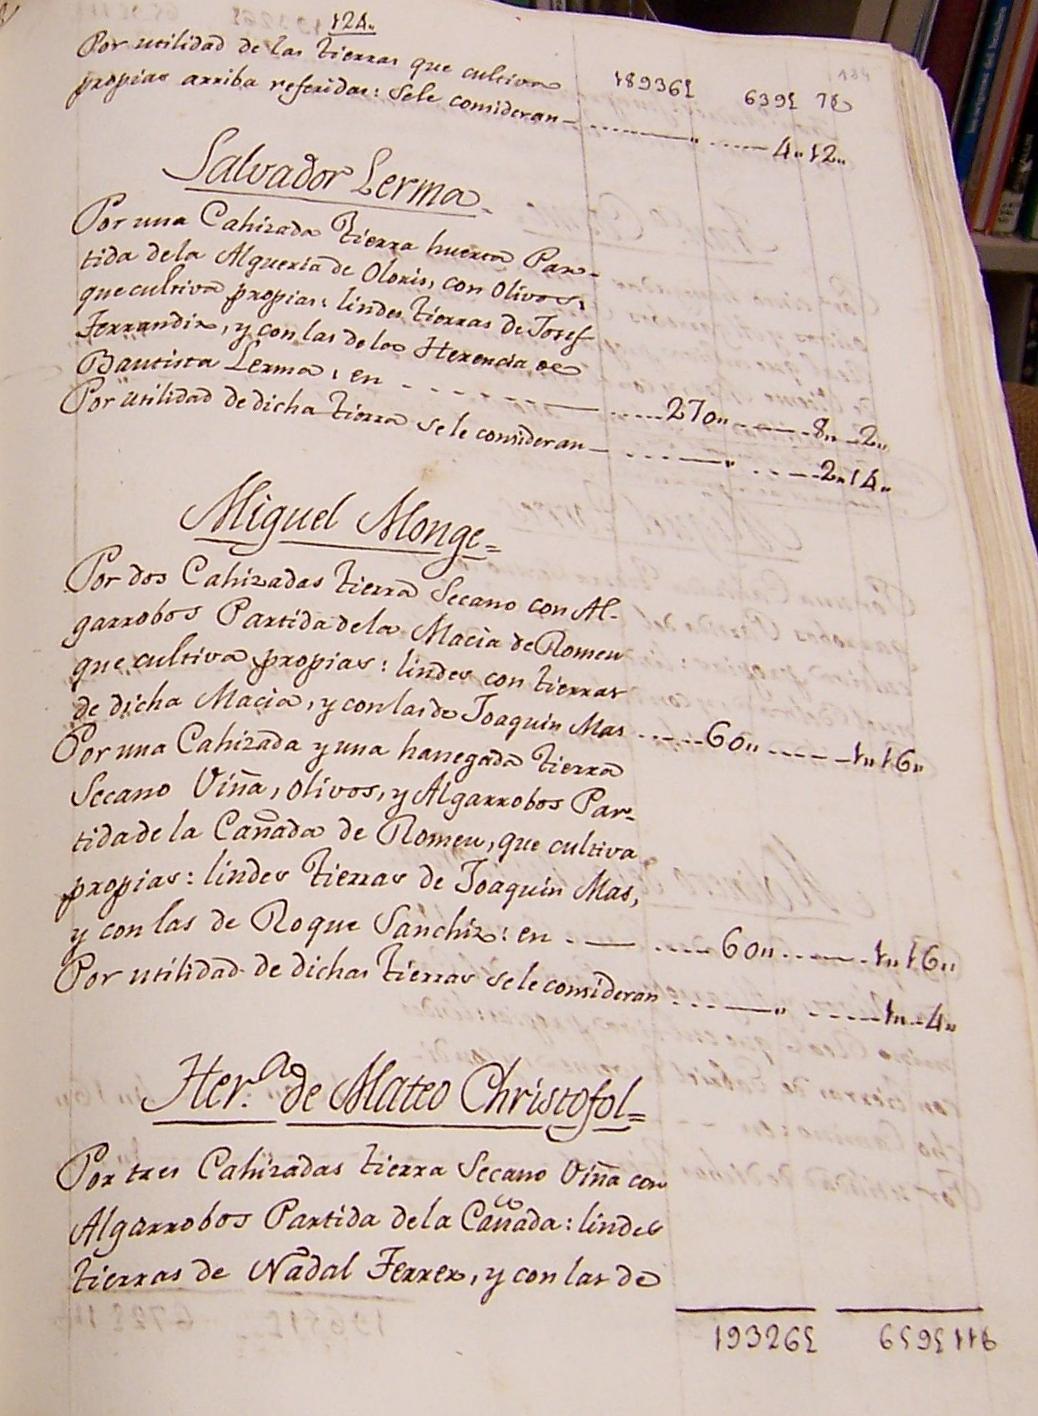 124.
184
Por utilidad de las tierras que cultiva
propias arriba referidas: Sele consideran 4,,12,,
Salvador Lerma
Por una Cahizada tierra huerta Par-
tida dela Alqueria de Oloris, con Olivos,
que cultiva propias: lindes tierras de Josef
Ferrandiz, y con las de la Herencia de
Bautista Lerma, en 270,, 8,, 2,,
Por utilidad de dicha tierra se le consideran ,, 2,,14,,
Miguel Monge
Por dos Cahizadas tierra Secano con Al-
garrobos Partida dela Macia de Romeu
que cultiva propias: lindes con tierras
de dicha Macia, y con las de Joaquin Mas 60,, 1,,16,,
Por una Cahizada y una hanegada tierra
Secano Viña, olivos, y Algarrobos Par-
tida de la Cañada de Romeu, que cultiva
propias: lindes tierras de Joaquin Mas,
y con las de Roque Sanchiz: en 60,, 1,,16,,
Por utilidad de dichas tierras se le consideran ,, 1,, 4,,
Her.a de Mateo Christofol
Por tres Cahizadas tierra Secano Viña con
Algarrobos Partida dela Cañada: lindes
tierras de Nadal Ferrer, y con las de